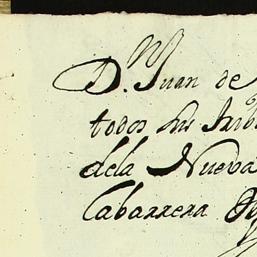 D. Juan de
todos sus
dela Nueva
Cabarrera